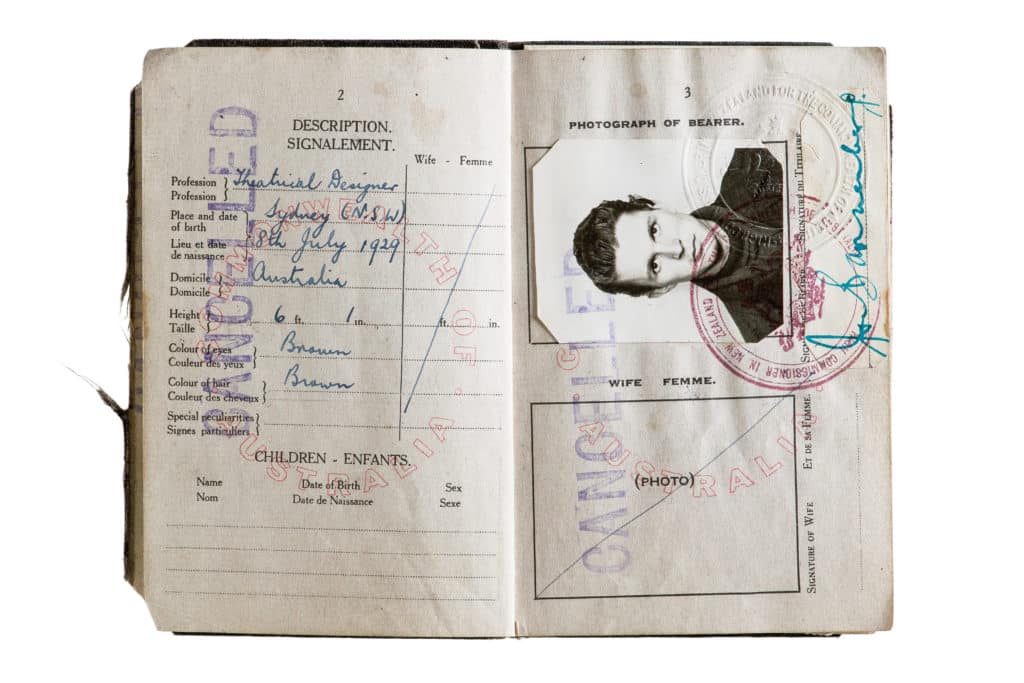 2
DESCRIPTION.
SIGNALEMENT.
Wife - Femme
Profession } Theatrical Designer
Profession
Place and date of birth } Sydney (N.S.W)
Lieu et date de naissance } 8th July 1929
Domicile } Australia
Domicile
Height } 6 ft. 1 in. ft. in.
Taille
Colour of eyes } Brown
Couleur des yeux
Colour of hair } Brown
Couleur des cheveux
Special peculiarities }
Signes particuliers
CHILDREN - ENFANTS.
Name Date of Birth Sex
Nom Date de Naissance Sexe
CANCELLED
COMMONWEALTH OF.
AUSTRALIA
3
PHOTOGRAPH OF BEARER.
SIGNATURE DU TITULAIRE
WIFE FEMME.
(PHOTO)
SIGNATURE OF WIFE ET DE SA FEMME.
CANCELLED
AUSTRALIA
COMMISSIONER IN NEW ZEALAND